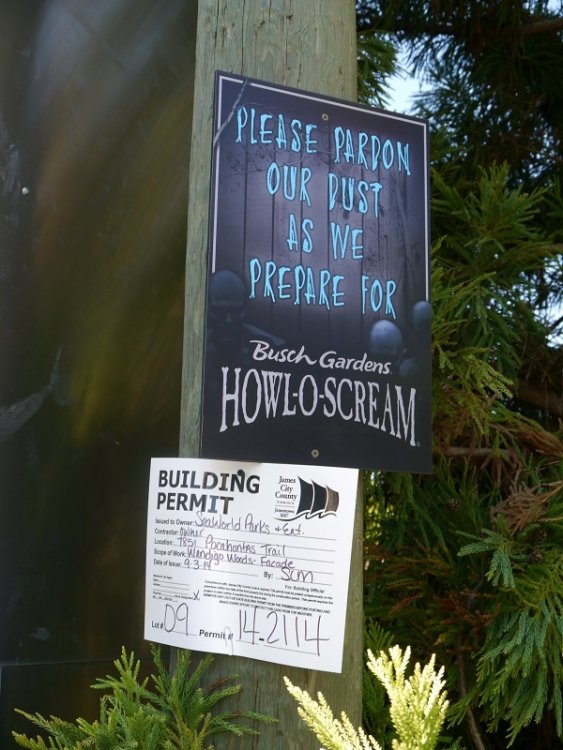 PLEASE PARDON
OUR DUST
AS WE
PREPARE FOR
Busch Gardens
HOWL-O-SCREAM
BUILDING
PERMIT
James
City
County
Jamestown
1607
Issued to Owner: SeaWorld Parks & Ent.
Contractor: Owner
Location: 7851 Pocahontas Trail
Scope of Work: Wendigo Woods - Facade
Date of Issue: 9.3.14 By: SCM
For: Building Official
Lot # D9 Permit # 14.2114